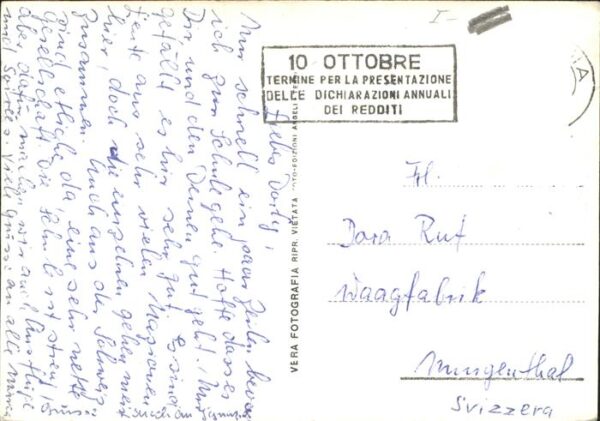 I-
10 OTTOBRE
TERMINE PER LA PRESENTAZIONE
DELLE DICHIARAZIONI ANNUALI
DEI REDDITI
VERA FOTOGRAFIA RIPR. VIETATA
Frl.
Dora Ruf
Waagfabrik
Murgenthal
Svizzera
Nur schnell ein paar Zeilen bevor
ich zur Schule gehe. Hoffe dass es
Dir und den Deinen gut geht! Mir
gefällt es hier sehr gut. Es sind
Leute aus sehr vielen Nationen
hier, doch die einzelnen gehen meist
zusammen. Auch aus der Schweiz
sind etliche da, eine sehr nette
Gesellschaft. Die Schule ist streng,
aber dafür machen wir auch Ausflüge
und Viele Grüsse an alle